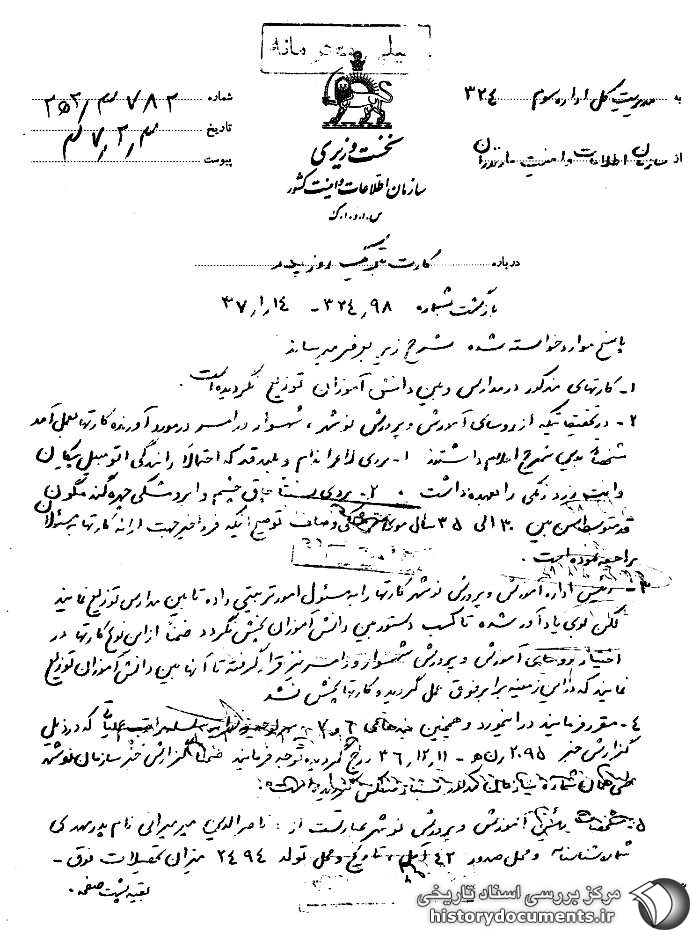 خیلی محرمانه
به مدیریت کل اداره سوم ۳۲۴
از سازمان اطلاعات و امنیت مازندران
شماره ۷۸۲
تاریخ
پیوست
نخست وزیری
سازمان اطلاعات و امنیت کشور
س.ا.و.ا.ک
درباره کارت تبریک روز پدر
بازگشت بشماره ۳۲۴٫۹۸ - ۳۷٫۱٫۱۴
پاسخ موارد خواسته شده بشرح زیر بعرض میرساند
۱- کارتهای مذکور در مدارس و بین دانش آموزان توزیع نگردیده است.
۲- در تحقیقاتیکه از روسای آموزش و پرورش نوشهر، شهسوار و رامسر در مورد آورنده کارتها بعمل آمد
مشخصات وی بدین شرح اعلام داشتند ۱- مردی لاغر اندام و بلند قد که احتمالا رانندگی اتومبیل پیکان
وانیت زرد رنگی را بعهده داشت. ۲- مردی نسبتا چاق چشم و ابرو مشکی چهره گندمگون
قد متوسط سن بین ۳۰ الی ۳۵ سال موی مشکی و صاف توضیح اینکه فرد اخیر جهت ارائه کارتها بمسئولان
مراجعه نموده است.
۳- رئیس اداره آموزش و پرورش نوشهر کارتها را به مسئول امور تربیتی داده تا بین مدارس توزیع نمایند
لکن بوی یادآور شده تا کسب دستور بین دانش آموزان پخش نگردد ضمنا از این نوع کارتها در
اختیار روسای آموزش و پرورش شهسوار و رامسر نیز قرار گرفته تا آنها بین دانش آموزان توزیع
نمایند که در این زمینه برابر فوق عمل گردید و کارتها پخش نشد
۴- مقرر فرمایند در اینمورد و همچنین بندهای ۶ و ۷ که در ذیل
گزارش خبر ۲۰۹۵ - ۳۶٫۱۲٫۱۱ درج گردیده توجه فرمایند ضمنا گزارش خبر سازمان نوشهر
طی همان شماره منعکس گردیده است.
۵- آموزش و پرورش نوشهر عبارتست از: ناصرالدین میرمیرانی نام پدر مهدی
شماره شناسنامه و محل صدور ۴۲ آمل، تاریخ و محل تولد ۲۴۹۴ میزان تحصیلات فوق -
بقیه پشت صفحه.
مرکز بررسی اسناد تاریخی
historydocuments.ir